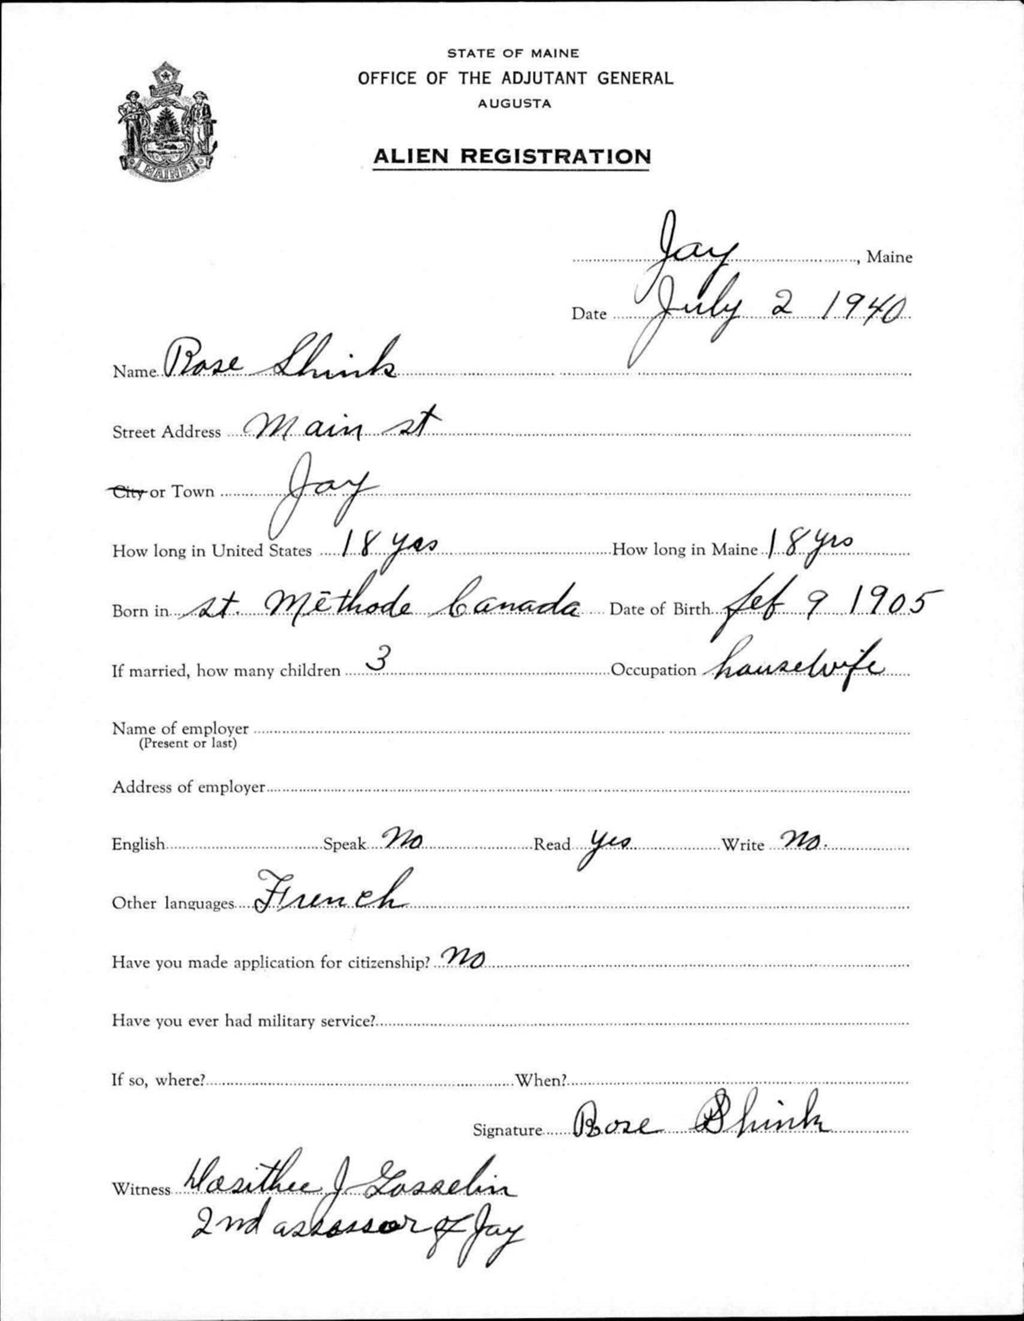 STATE OF MAINE
OFFICE OF THE ADJUTANT GENERAL
AUGUSTA
ALIEN REGISTRATION
MAINE
Jay, Maine
Date July 2 1940
Name Rose Shink
Street Address Main st
City or Town Jay
How long in United States 18 yrs How long in Maine 18 yrs
Born in st. Méthode Canada Date of Birth feb 9 1905
If married, how many children 3 Occupation housewife
Name of employer
(Present or last)
Address of employer
English Speak No Read yes Write No.
Other languages French
Have you made application for citizenship? No
Have you ever had military service?
If so, where? When?
Signature Rose Shink
Witness Dosithee J Gosselin
2nd assessor of Jay